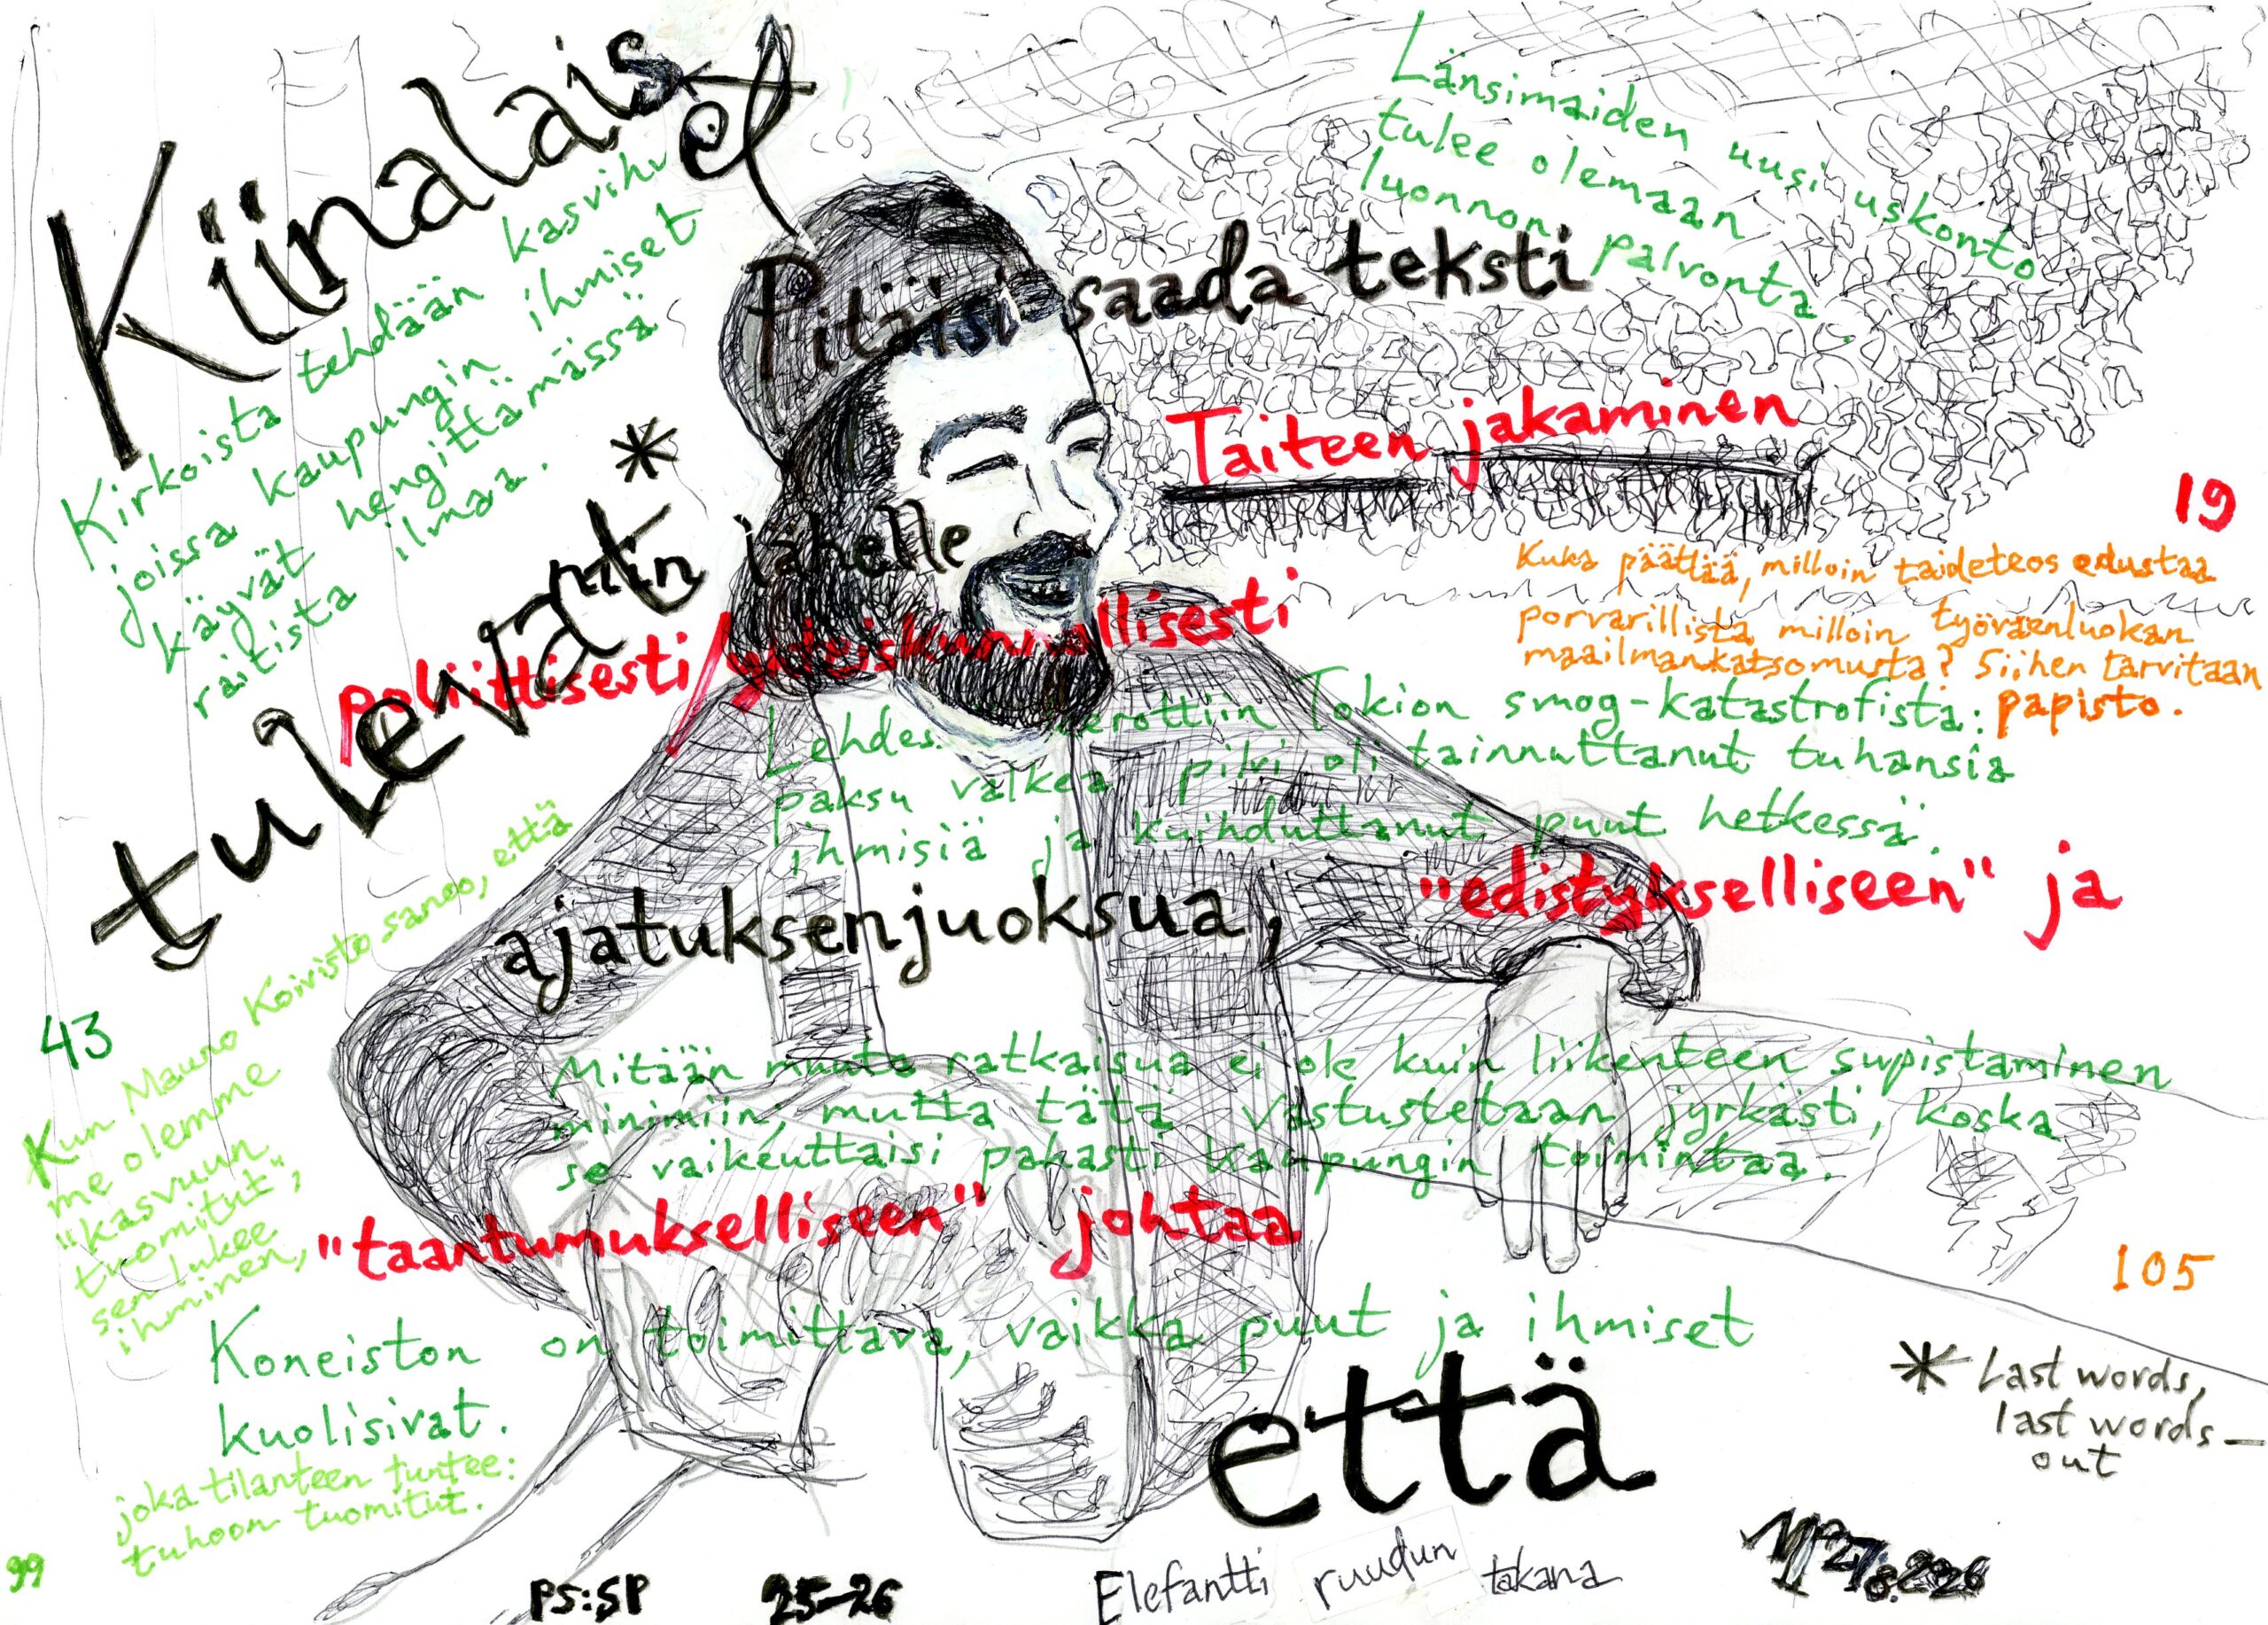 Kiinalaiset
tulevat*
Kirkoista tehdään
joissa kaupungin ihmiset
käyvät hengittämässä
raitista ilmaa.
Länsimaiden uusi uskonto
tulee olemaan
luonnon palvonta
Pitäisi saada teksti
niin lähelle
ajatuksenjuoksua,
että
Taiteen jakaminen
poliittisesti / yhteiskunnallisesti
"edistykselliseen" ja
"taantumukselliseen" johtaa
19
Kuka päättää, milloin taideteos edustaa
porvarillista milloin työväenluokan
maailmankatsomusta? Siihen tarvitaan
papisto.
105
kerottiin Tokion smog-katastrofista:
paksu valkea pilvi oli tainnuttanut tuhansia
ihmisiä ja kuihduttanut puut hetkessä.
Mitään muuta ratkaisua ei ole kuin liikenteen supistaminen
minimiin; mutta tätä vastustetaan jyrkästi, koska
se vaikeuttaisi pahasti kaupungin toimintaa.
Koneiston on toimittava, vaikka puut ja ihmiset
kuolisivat.
43
Kun Mauno Koivisto sanoo, että
me olemme
"kasvuun
tuomitut",
sen lukee
ihminen,
joka tilanteen tuntee:
tuhoon tuomitut.
99
* Last words,
last words –
out
PS:SP 25-26
Elefantti ruudun takana
MP 27.8.2026